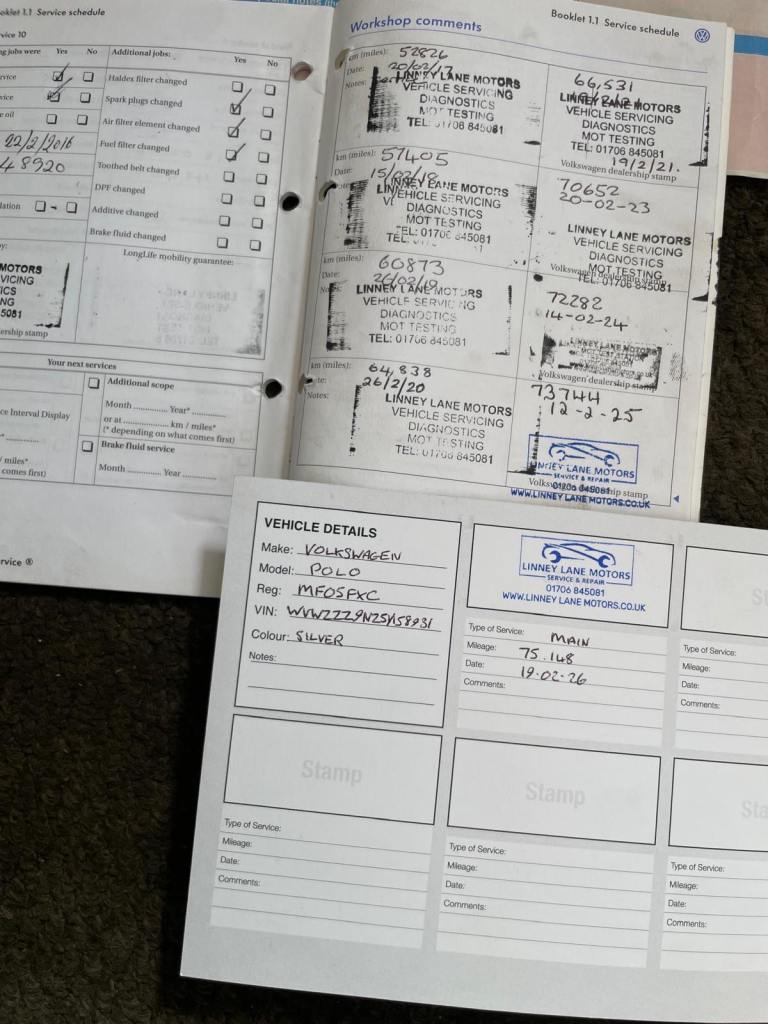 Booklet 1.1 Service schedule
Service 10
Yes No
Additional jobs:
Yes No
Haldex filter changed
Spark plugs changed
Air filter element changed
Fuel filter changed
Toothed belt changed
DPF changed
Additive changed
Brake fluid changed
22/2/2016
48920
LongLife mobility guarantee:
MOTORS
VICING
ICS
NG
5081
ership stamp
Your next services
Additional scope
Month Year*
or at km / miles*
(* depending on what comes first)
Brake fluid service
Month Year
ce Interval Display
/ miles*
comes first)
Workshop comments
Booklet 1.1 Service schedule
km (miles): 52826
Date: 20/02/17
Notes:
LINNEY LANE MOTORS
VEHICLE SERVICING
DIAGNOSTICS
MOT TESTING
TEL: 01706 845081
km (miles): 57405
Date: 15/02/18
LINNEY LANE MOTORS
VEHICLE SERVICING
DIAGNOSTICS
MOT TESTING
TEL: 01706 845081
km (miles): 60873
Date: 26/02/19
LINNEY LANE MOTORS
VEHICLE SERVICING
DIAGNOSTICS
MOT TESTING
TEL: 01706 845081
km (miles): 64,838
26/2/20
Notes:
LINNEY LANE MOTORS
VEHICLE SERVICING
DIAGNOSTICS
MOT TESTING
TEL: 01706 845081
66,531
LINNEY LANE MOTORS
VEHICLE SERVICING
DIAGNOSTICS
MOT TESTING
TEL: 01706 845081
19/2/21.
Volkswagen dealership stamp
70652
20-02-23
LINNEY LANE MOTORS
VEHICLE SERVICING
DIAGNOSTICS
MOT TESTING
Volkswagen dealership stamp
TEL: 01706 845081
72282
14-02-24
LINNEY LANE MOTORS
MOT TEST STATION
Volkswagen dealership stamp
73744
12-2-25
LINNEY LANE MOTORS
SERVICE & REPAIR
Volkswagen dealership stamp
01706 845081
WWW.LINNEY LANE MOTORS.CO.UK
VEHICLE DETAILS
Make: VOLKSWAGEN
Model: POLO
Reg: MF05FXC
VIN: WVWZZZ9NZ5Y158931
Colour: SILVER
Notes:
LINNEY LANE MOTORS
SERVICE & REPAIR
01706 845081
WWW.LINNEY LANE MOTORS.CO.UK
Type of Service: MAIN
Mileage: 75.148
Date: 19.02-26
Comments:
Type of Service:
Mileage:
Date:
Comments:
Stamp
Type of Service:
Mileage:
Date:
Comments:
Stamp
Type of Service:
Mileage:
Date:
Comments:
Sta
Type of Service:
Mileage:
Date:
Comments: